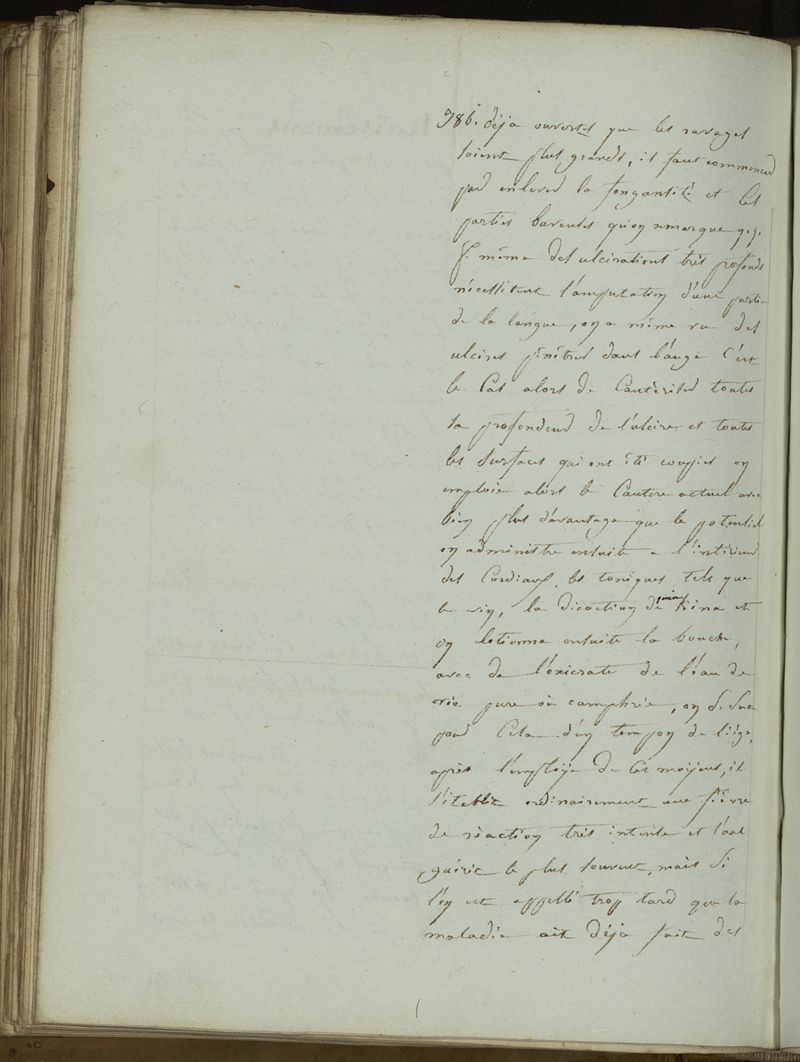 986. déja ouvertes que les ravages
soient plus grands, il faut commencer
par enlever la fongosité et les
parties baveuses qu'on remarque q.q.
f. même des ulcérations très profonds
nécessitent l'amputation d'une partie
de la langue, on a même vu des
ulcères pénétrer dans l'auge c'est
le Cas alors de Cautériser toutes
la profondeur de l'ulcère et toutes
les surfaces qui ont été coupés on
emploie alors le Cautère actuel avec
bien plus d'avantage que le potentiel
on administre ensuite a l'intérieur
des Cordiaux, les toniques tels que
le vin, la décoction de quinkina et
on lotionne ensuite la bouche,
avec de l'oxicrate de l'éau de
vie pure ou camphrée, on se sert
pour Cela d'un tampon de liège,
après l'employe de ces moijens, il
s'etablit ordinairement une fièvre
de réaction très intense et l'aal
guérit le plus souvent, mais si
l'on est appellé trop tard que la
maladie ait déjà fait des